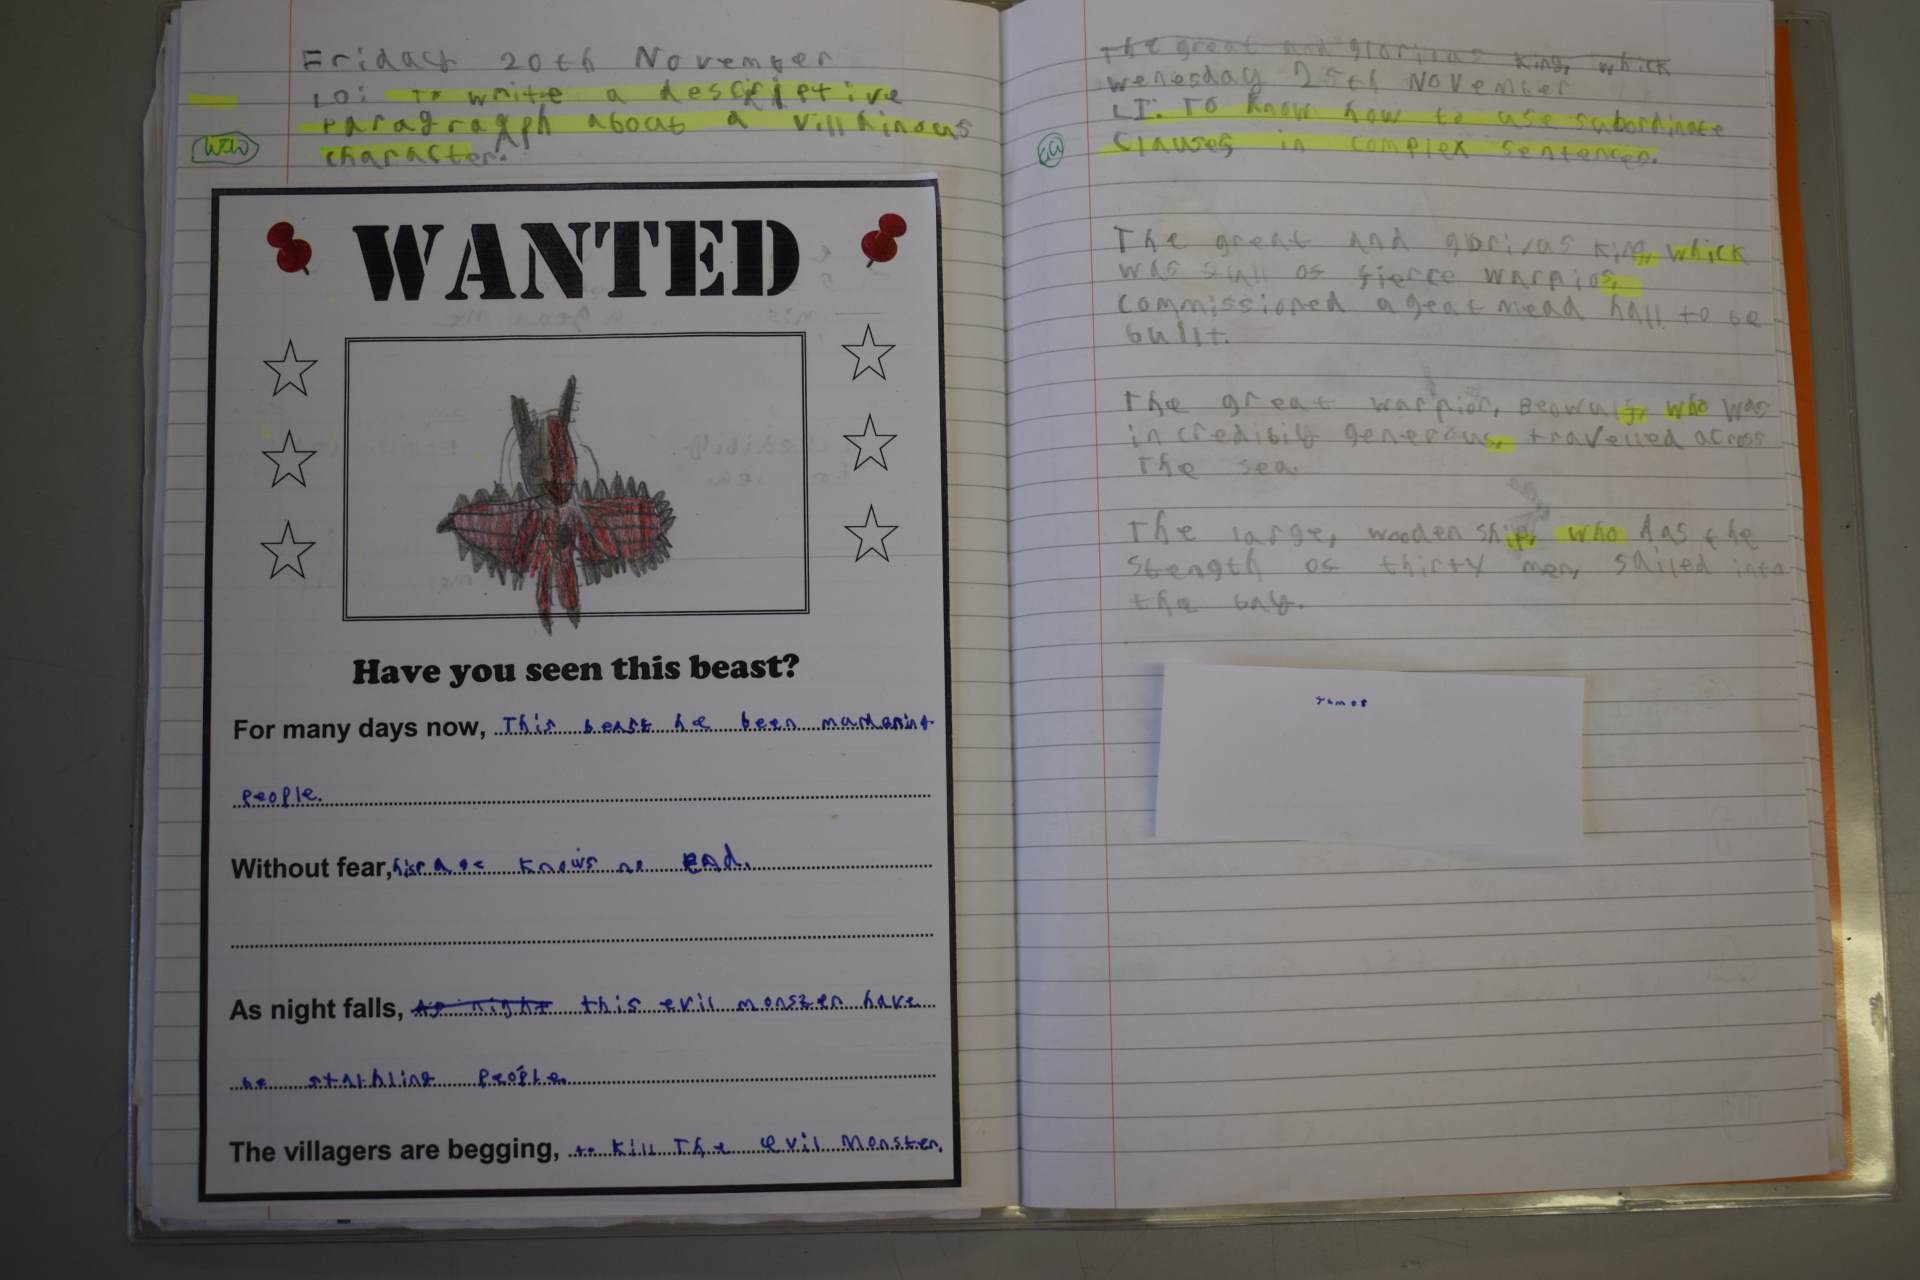 Friday 20th November
LO: To write a descriptive
paragraph about a villhinous
character.
WANTED
Have you seen this beast?
For many days now, This beast he been
people.
Without fear, knows no end.
As night falls, As night this evil monster have
be people.
The villagers are begging, to kill The evil Monster.
The great and glorious king, which
wenesday 25th November
LI: To know how to use subordinate
Clauses in complex sentences.
The great and glorious king, which
was full of fierce warrios,
commissioned a geat mead hall to be
built.
The great warrior, Beowulf, who was
incredibily generous, travelled across
The sea.
The large, wooden ship, who has the
stength of thirty men, sailed into
the bay.